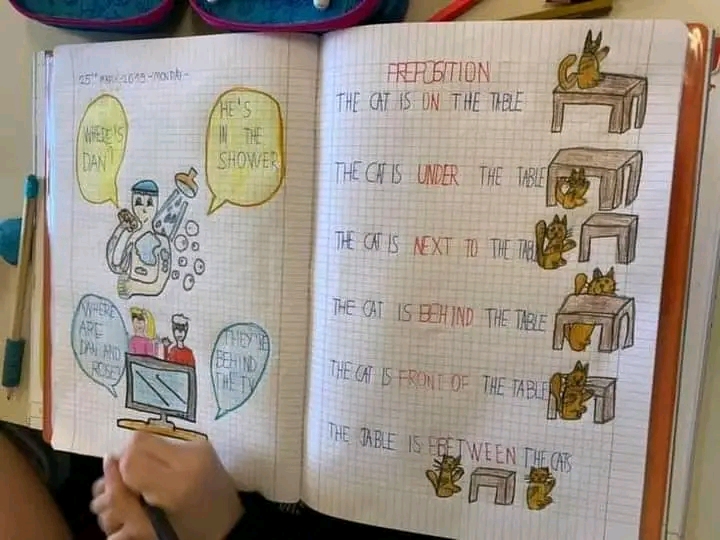 25TH MARCH-2019-MONDAY-
WHERE'S
DAN?
HE'S
IN THE
SHOWER
WHERE
ARE
DAN AND
ROSE?
THEY'RE
BEHIND
THE TV
PREPOSITION
THE CAT IS ON THE TABLE
THE CAT IS UNDER THE TABLE
THE CAT IS NEXT TO THE TABLE
THE CAT IS BEHIND THE TABLE
THE CAT IS FRONT OF THE TABLE
THE TABLE IS BEETWEEN THE CATS